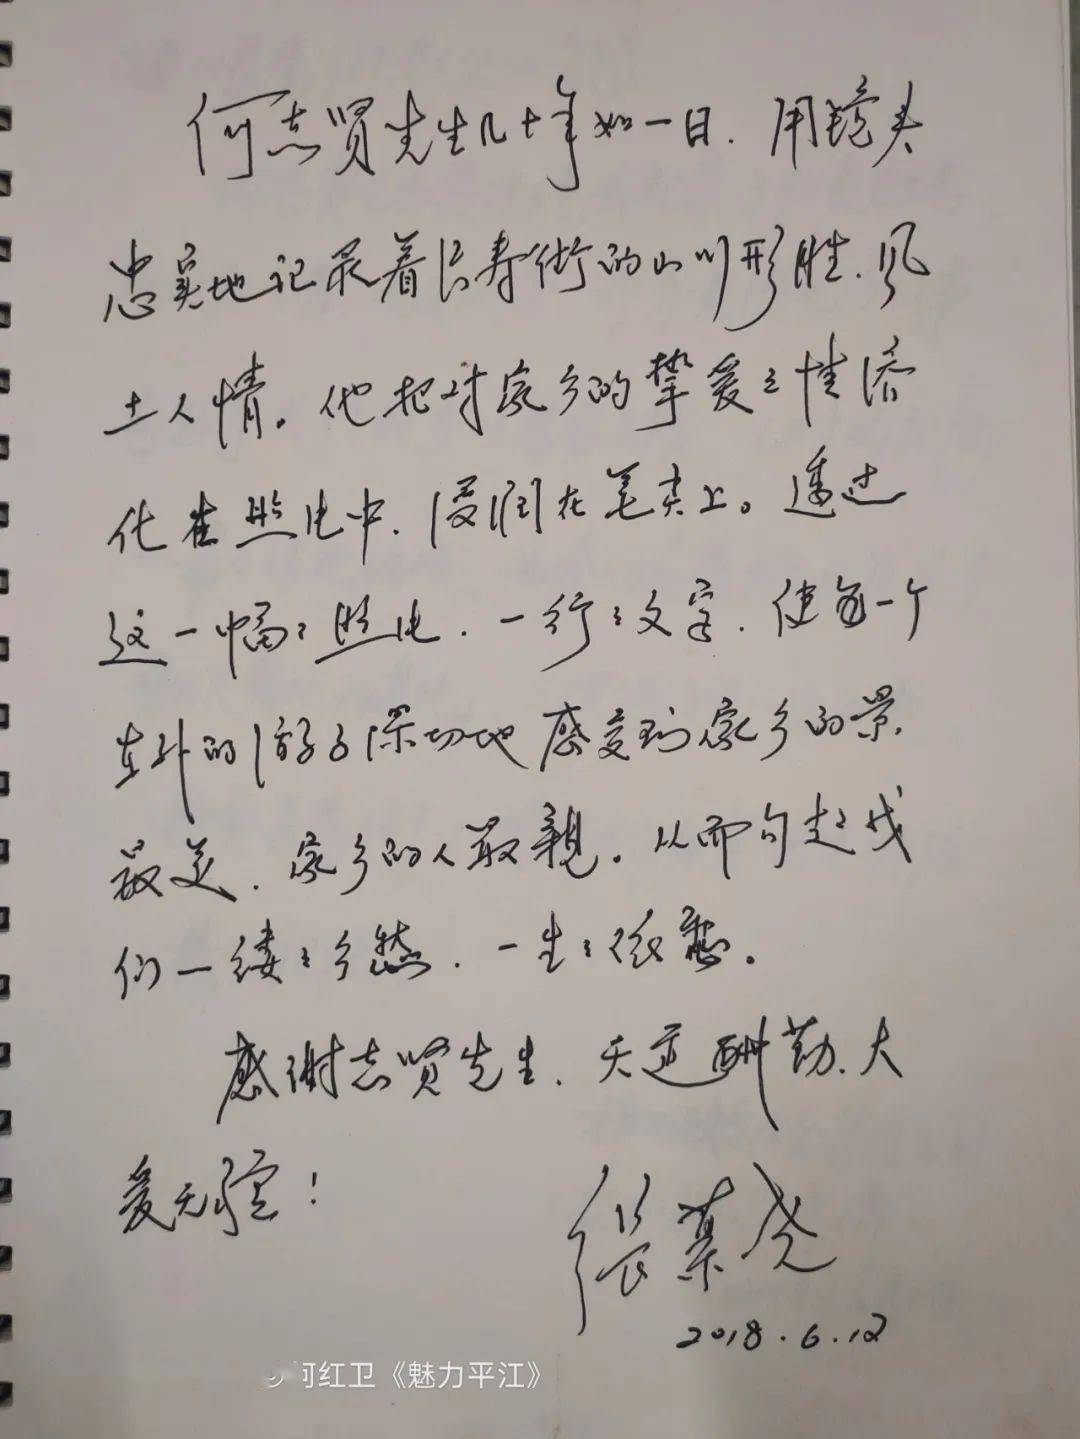 何志贤先生几十年如一日.用镜头
忠实地记录着长寿街的山川形胜.风
土人情。他把对家乡的挚爱之情溶
化在照片中.浸润在笔尖上。透过
这一幅々照片.一行々文字.使每一个
在外的游子深切地感受到家乡的景
最美.家乡的人最親。从而勾起我
们一缕々乡愁.一生々依恋。
感谢志贤先生.天道酬勤.大
爱无疆!
张慕尧
2018.6.12
何红卫《魅力平江》